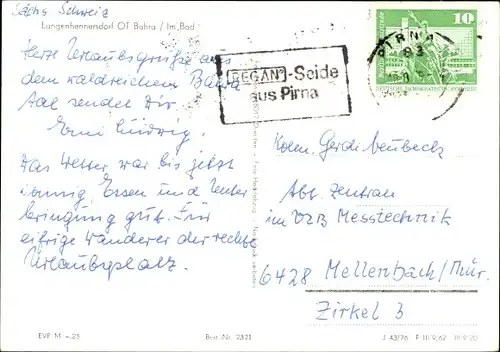 Sächs Schweiz
Langenhennersdorf OT Bahra / Im Bad
Herzl Urlaubsgrüße aus
dem waldreichem Bahra
Tal sendet Dir.
Erni Ludwig.
Das Wetter war bis jetzt
sonnig, Essen und Unter
bringung gut. Für
eifrige Wanderer der rechte
Urlaubsplatz.
REGAN-Seide
aus Pirna
PIRNA
83
10
DEUTSCHE DEMOKRATISCHE
Kolln. Gerdi Neubeck
Abt. Zentran
im VZB Messtechnik
6428 Mellenbach/Thür.
Zirkel 3
EVP M -.25
Best.-Nr. 2321
J 43/76 P III 9,62 III 9 20